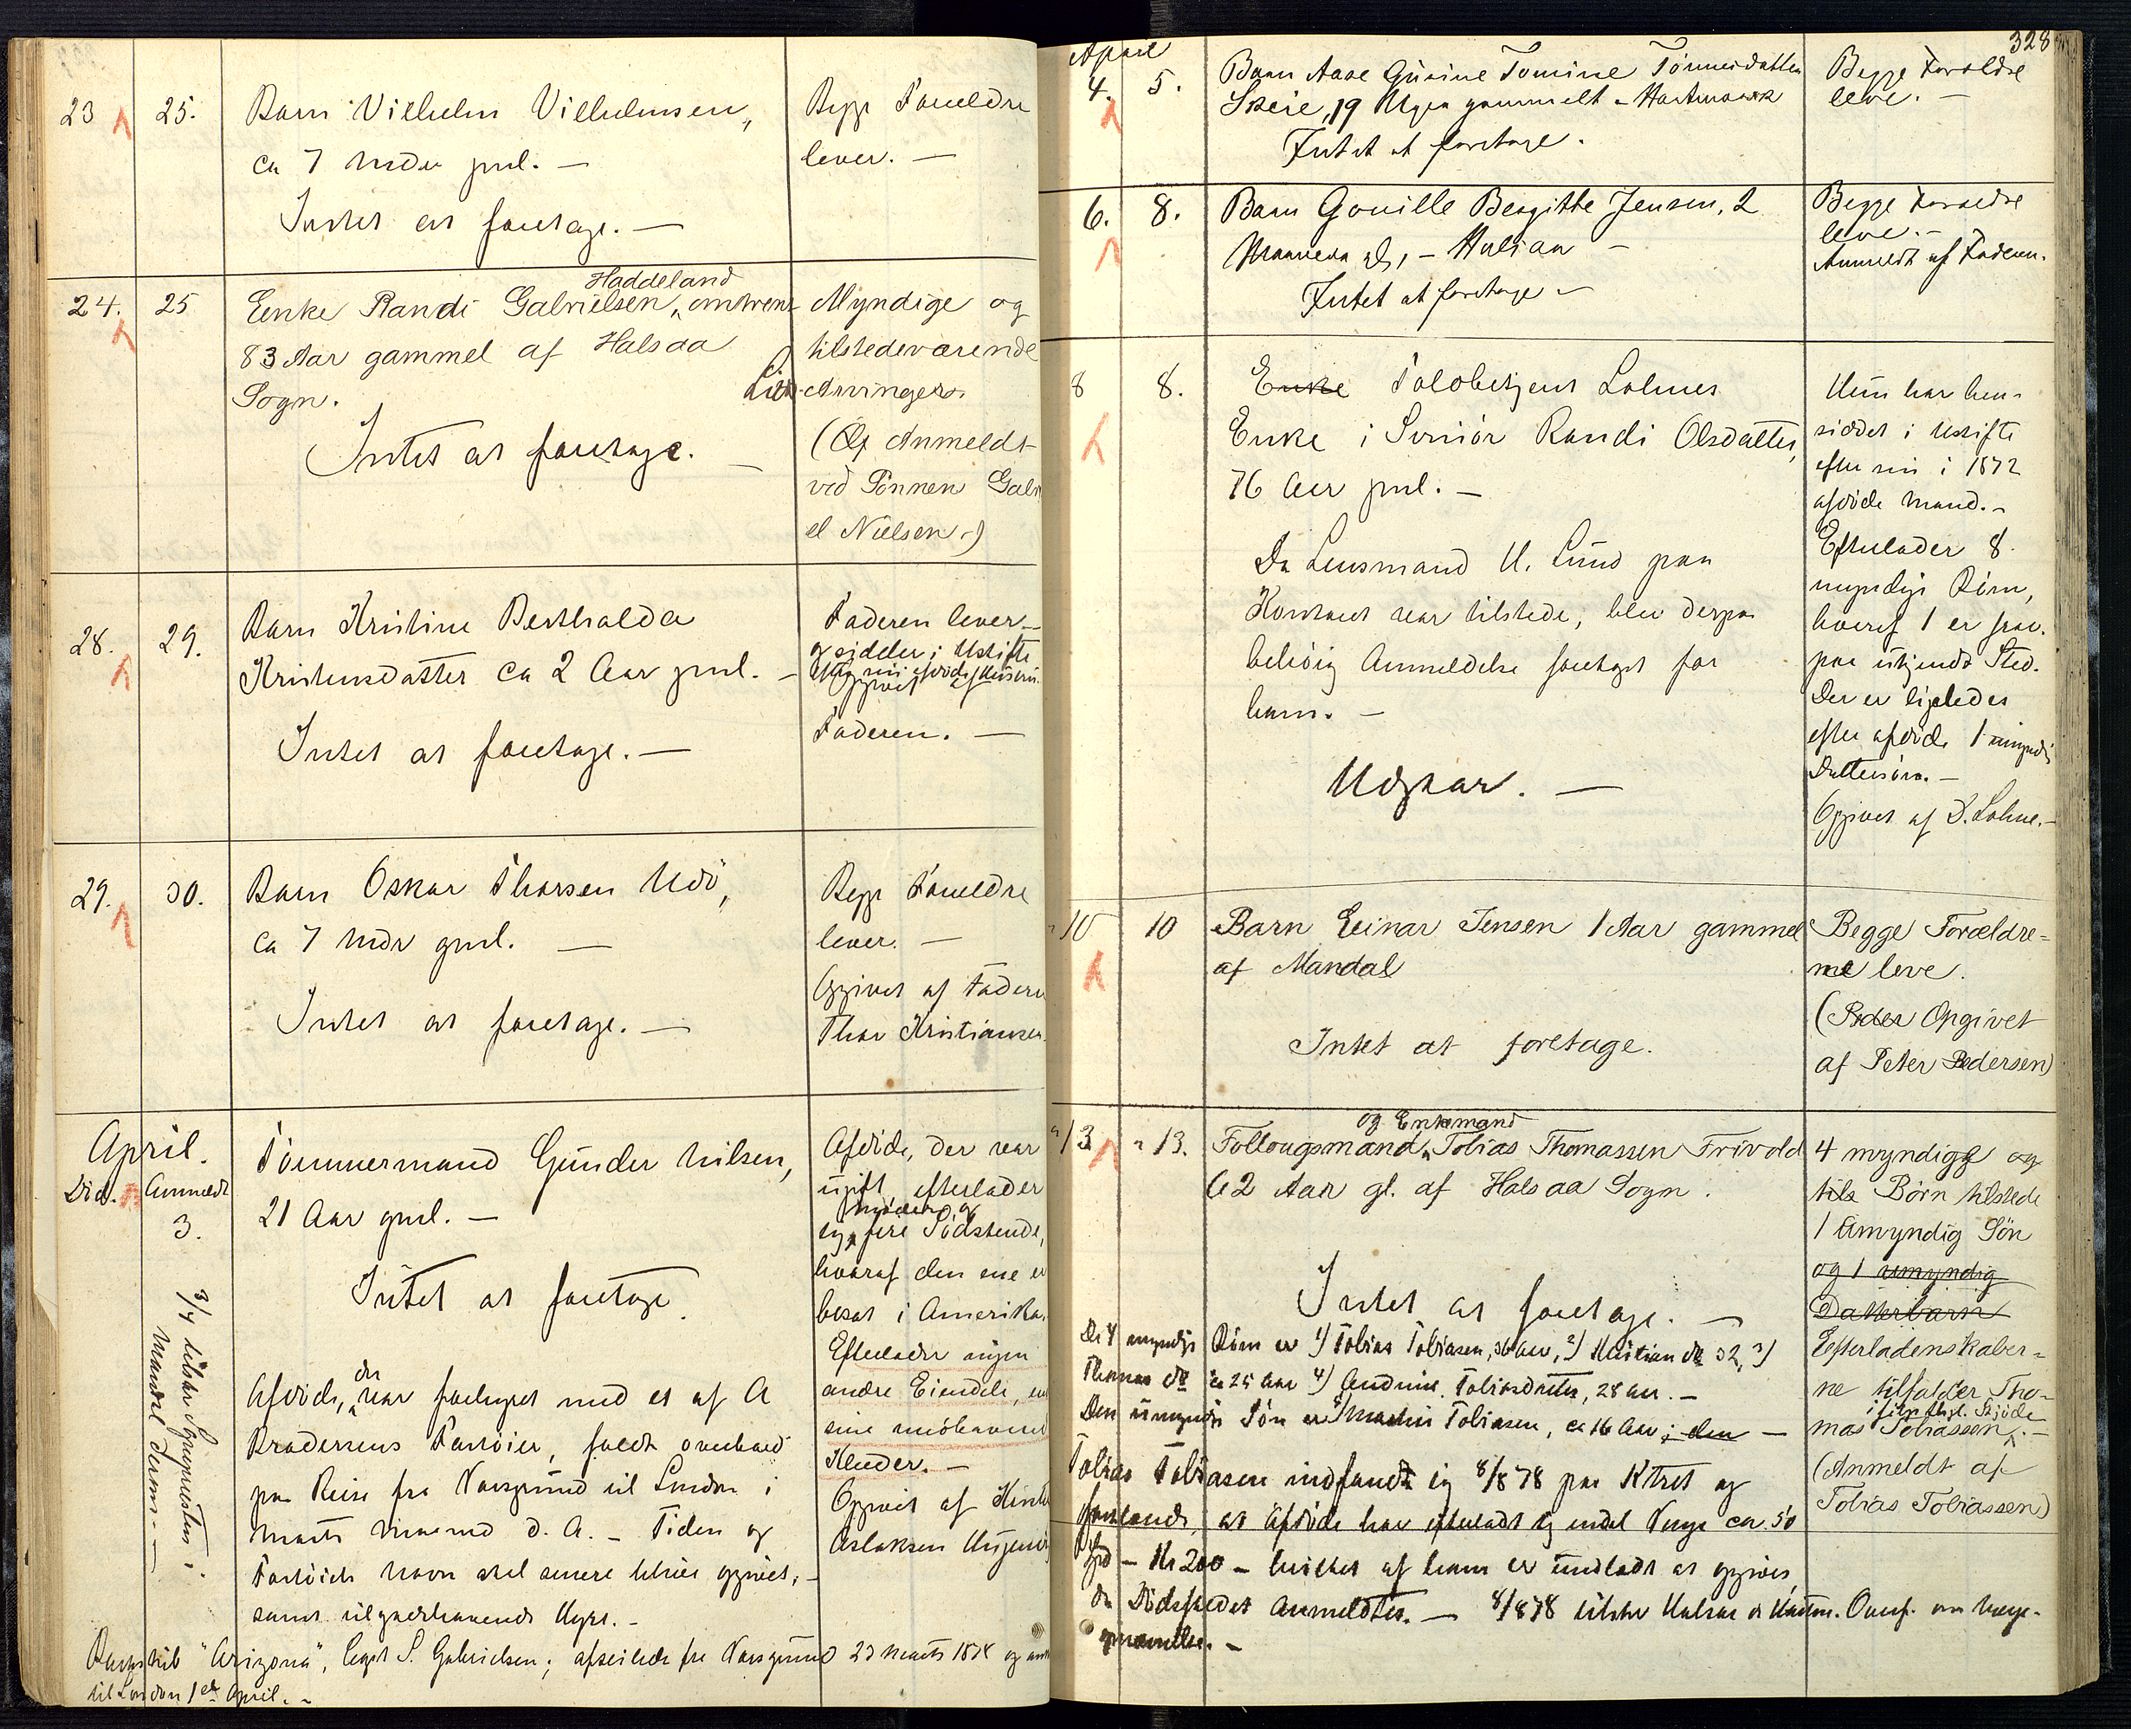 23 25. Barn Vilhelm Vilhelmsen,
ca 7 Mdr gml. —
Intet at foretage. —
Begge Foreldre
lever. —
24. 25 Enke Randi Gabrielsen, omtrent
Haddeland
83 Aar gammel af Halsaa
Sogn.
Intet at foretage. —
Myndige og
tilstedeværende
Livs-Arvinger.
(Og Anmeldt
vid Sønnen Gabri
el Nielsen.)
28. 29. Barn Kristine Berthalda
Kristensdatter ca 2 Aar gml. —
Intet at foretage. —
Faderen lever
og sidder i Uskifte
efter sin afdøde Hustru.
Opgivet af
Faderen. —
29. 30. Barn Oskar Thorsen Udø,
ca 7 Mdr gml. —
Intet at foretage. —
Begge Foreldre
lever. —
Opgivet af Faderen
Thor Kristiansen.
April.
Død. Anmeldt
3.
Tømmermand Gunder Nilsen,
21 Aar gml. —
Intet at foretage.
3/4 tilskr. Sognepræsten i
Mandal derom. —
Afdøde, der var forhyret med et af A
Brødersens Fartøier, faldt overbord
paa Reise fra Vansgrund til London i
Marts Maaned d. A. — Tiden og
Fartøiets Navn skal senere blive opgivet, —
samt tilgodehavende Hyre. —
Barkskib "Arizona", Capt S. Gabrielsen; afseilede fra Vansgrund 23 Marts 1878 og ank
til London 1ste April. —
Afdøde, der var
ugift, efterlader
sig Moder og fire Sødskende,
hvoraf den ene er
bosat i Amerika.
Efterlader ingen
andre Eiendele, end
sine iøhavende
Klæder. —
Opgivet af
Aslaksen
328
April
4. 5. Barn Aase Gurine Tomine Tønnesdatter
Skeie, 19 Uger gammelt — Hartmark
Intet at foretage.
Begge Forældre
leve. —
6. 8. Barn Gonille Bergitte Jensen, 2
Maaneder gl, — Halsaa —
Intet at foretage —
Begge Forældre
leve. —
Anmeldt af Faderen.
8 8. Enke Toldbetjent Lohnes
Enke i Svinør Randi Olsdatter,
76 Aar gml. —
Da Lensmand U. Lund paa
Kontoret var tilstede, blev derpaa
behørig Anmeldelse foretaget for
ham. —
Udgaar. —
Hun har hen-
siddet i Uskifte
efter sin i 1872
afdøde Mand. —
Efterlader 8
myndige Børn,
hvoraf 1 er frav.
paa ukjendt Sted.
Der er ligeledes
efter afdøde 1 umyndig
Dattersøn. —
Opgivet af S. Lohne. —
10 10 Barn Einar Jensen 1 Aar gammel
af Mandal
Intet at foretage.
Begge Forældre-
ne leve.
(Peder Opgivet
af Peter Pedersen)
13 13. Føllougsmand og Enkemand Tobias Thomassen Frivold
62 Aar gl. af Halsaa Sogn.
Intet at foretage. —
De 4 myndige Børn er 1) Tobias Tobiasen, 36 Aar, 2) Kristian do 32, 3)
Thomas do ca 25 Aar 4) Andrine Tobiasdatter, 28 Aar. —
Den umyndige Søn er Martin Tobiasen, ca 16 Aar; den —
Tobias Tobiasen indfandt sig 8/8 78 paa Ktret og
forklarede, at Afdøde har efterladt sig endel Penge ca. 50
Spd — Kr 200 — hvilket af ham er undladt at opgives,
da Dødsfaldet anmeldtes. — 8/8 78 tilskr Halsaa & Hartm. Overf. om Værge-
opnævnelse. —
4 myndige og
tils Børn tilstede
1 umyndig Søn
og 1 umyndig
Datterbarn
Efterladenskaber-
ne tilfalder Tho-
mas Tobiassen
i flg. thgl. Skjøde. —
(Anmeldt af
Tobias Tobiassen)